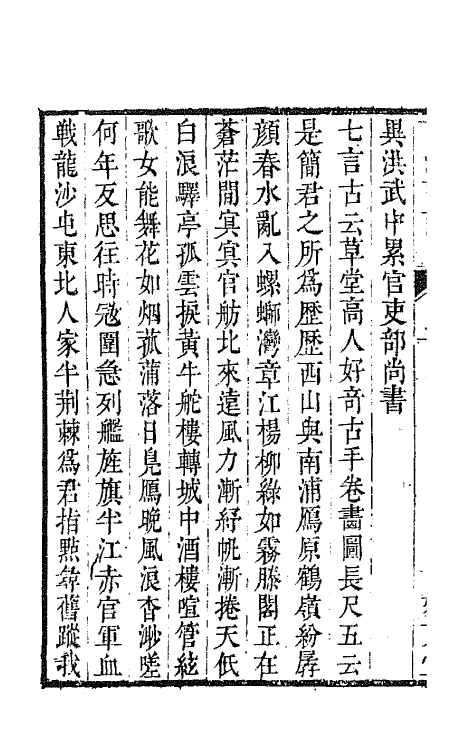 與洪武中累官吏部尚書
七言古云草堂高人好奇古手卷畵圖長尺五云
是簡君之所爲歷歷西山與南浦鴈原鶴嶺紛孱
顔春水亂入螺螄灣章江楊柳綠如霧滕閣正在
蒼茫間㝠㝠官舫北來遠風力漸紓帆漸捲天低
白浪驛亭孤雲捩黃牛舵樓轉城中酒樓喧管絃
歌女能舞花如烟菰蒲落日鳧鴈晚風浪杳渺嗟
何年反思往時冦圍急列艦旌旗半江赤官軍血
戰龍沙屯東北人家半荆棘爲君指點尋舊蹤我